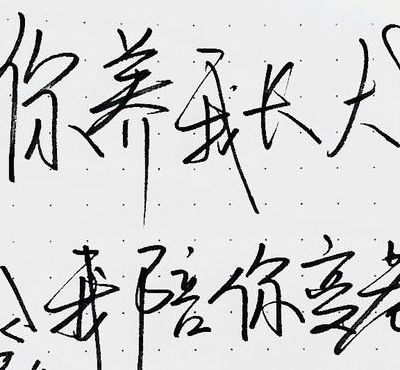 你养我长大
我陪你变老